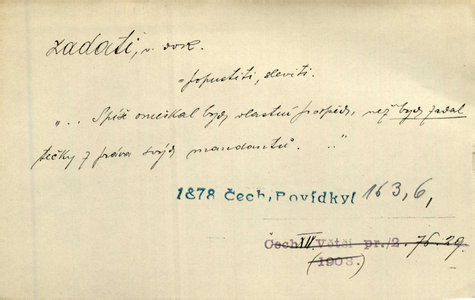 zadati, v. dok.
= popustiti, sleviti.
„.. Spíše omeškal bych vlastní prospěch, než bych zadal
tečky z práva svých mandantů. .."
1878 Čech, Povídkyl 163, 6,
Čech XIV. Větší pr./2. 76. 29.
(1903.)